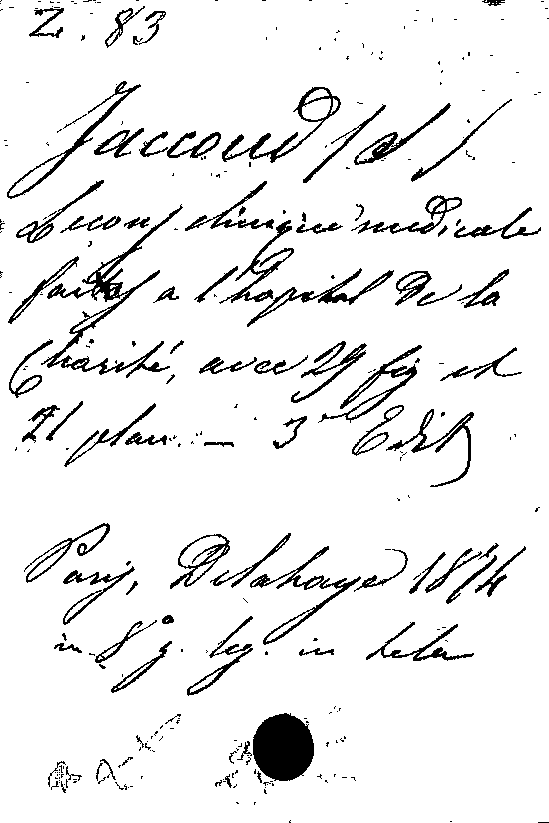 Z. 83
Jaccoud (S)
Leçons clinique medicale
faites a l'hopital de la
Charité, avec 29 fig et
21 plan. — 3e Edit
Paris, Delahaye 1874
in 8° g. leg. in tela